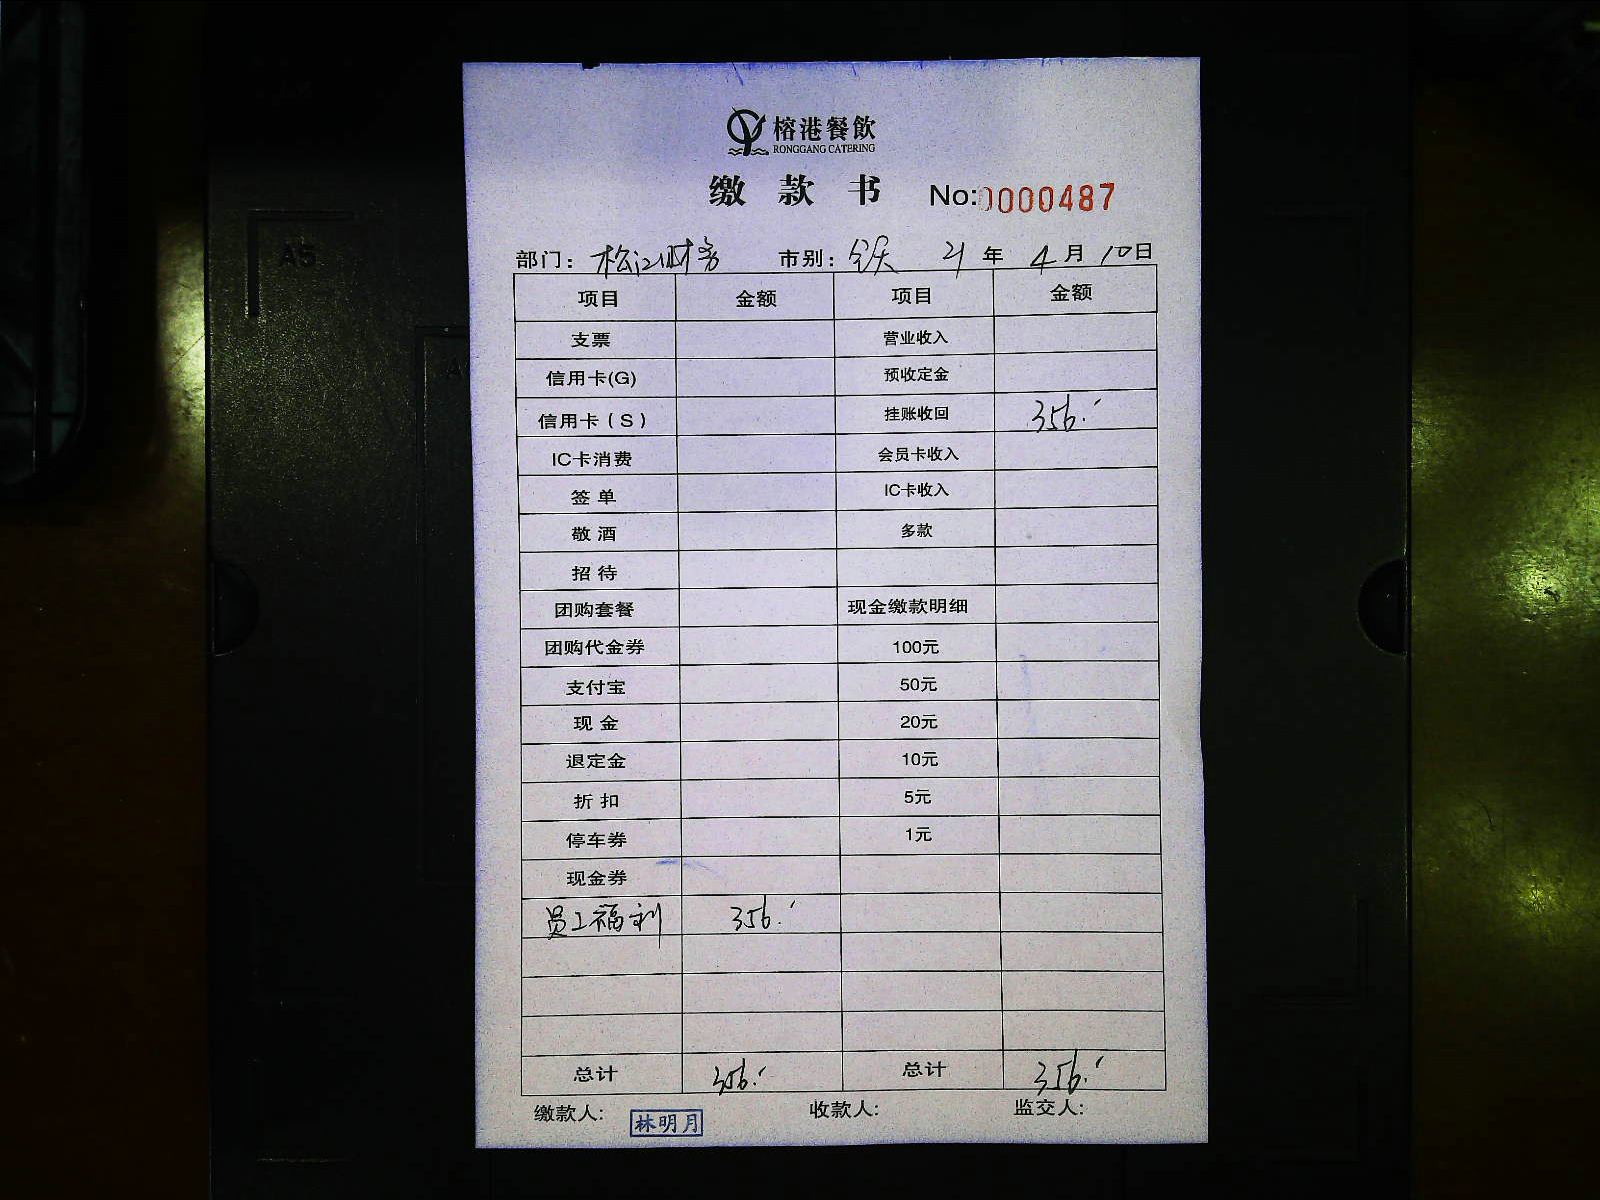 榕港餐飲
RONGGANG CATERING
缴款书 No:0000487
部门：松江财务 市别：全天 21年4月10日
项目 金额 项目 金额
支票 营业收入
信用卡(G) 预收定金
信用卡（S） 挂账收回 356.-
IC卡消费 会员卡收入
签单 IC卡收入
敬酒 多款
招待
团购套餐 现金缴款明细
团购代金券 100元
支付宝 50元
现金 20元
退定金 10元
折扣 5元
停车券 1元
现金券
员工福利 356.-
总计 356.- 总计 356.-
缴款人: 林明月 收款人: 监交人:
A5